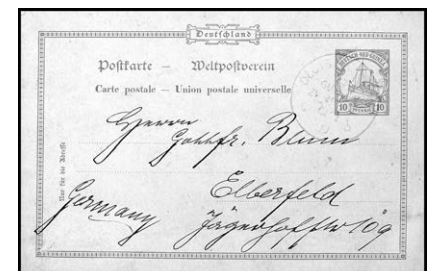 Deutschland
Postkarte — Weltpostverein
Carte postale — Union postale universelle
10 10
Nur für die Adresse
Herrn
Gottfr. Blum
Elberfeld
Germany
Jägerhofstr 109